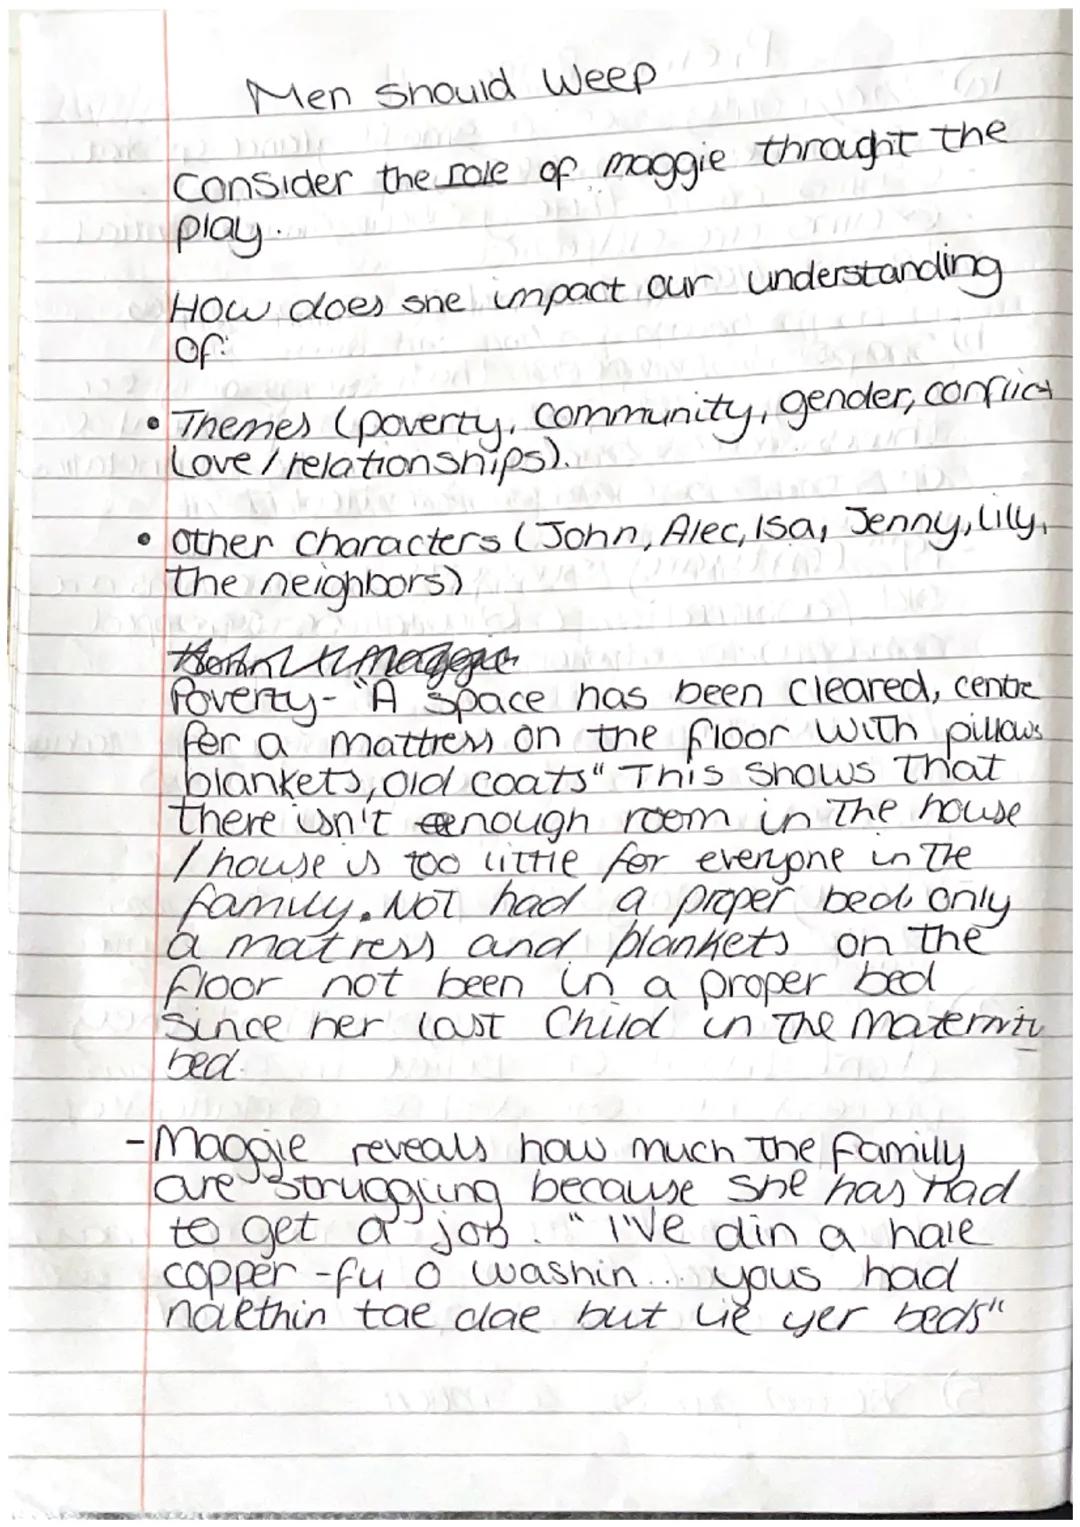 Men Should Weep
Consider the role of maggie throught the
play.
How does she impact our understanding
of:
• Themes (poverty, community, gender, conflict
Love / relationships).
• other characters (John, Alec, Isa, Jenny, Lily,
the neighbors)
Poverty - "A space has been cleared, centre
for a mattress on the floor with pillows
blankets, old coats" This shows that
there isn't enough room in the house
/ house is too little for everyone in the
family. Not had a proper bed, only
a matress and blankets on the
floor not been in a proper bed
since her last child in the maternity
bed.
- Maggie reveals how much the family
are struggling because she has had
to get a job. "I've din a hale
copper-fu o washin... yous had
naethin tae dae but lie yer beds"